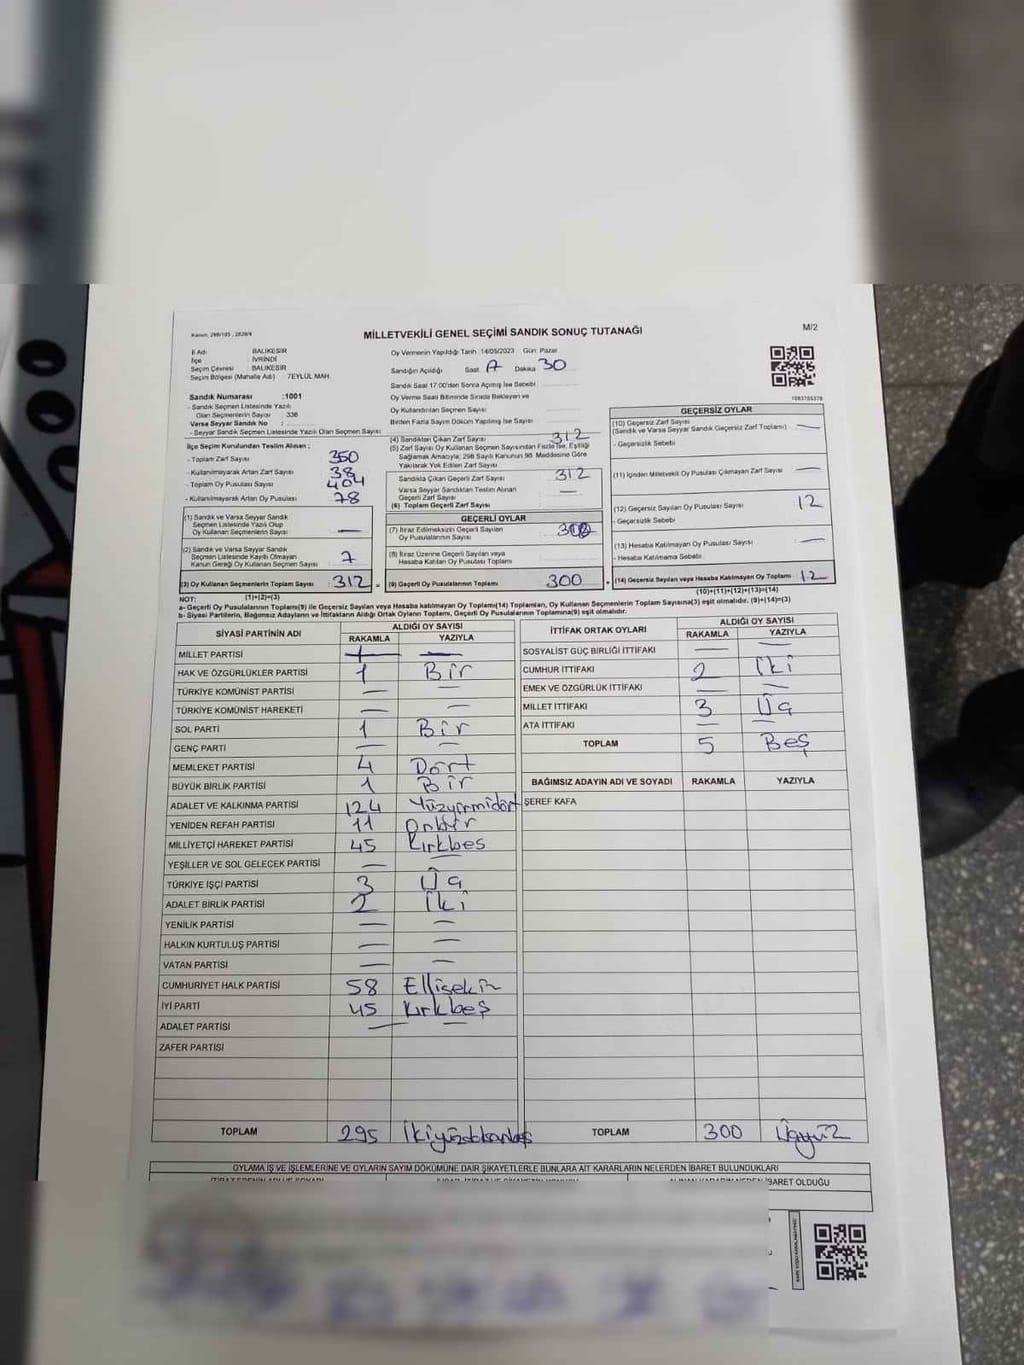 Kanun: 298/105 , 2839/4
MİLLETVEKİLİ GENEL SEÇİMİ SANDIK SONUÇ TUTANAĞI
M/2
İl Adı : BALIKESİR
İlçe : İVRİNDİ
Seçim Çevresi : BALIKESİR
Seçim Bölgesi (Mahalle Adı) : 7EYLÜL MAH.
Oy Vermenin Yapıldığı Tarih :14/05/2023 Gün: Pazar
Sandığın Açıldığı Saat Dakika 30
Sandık Saat 17:00'den Sonra Açılmış İse Sebebi
Oy Verme Saati Bitiminde Sırada Bekleyen ve
Oy Kullandırılan Seçmen Sayısı
Birden Fazla Sayım Döküm Yapılmış İse Sayısı
Sandık Numarası :1001
- Sandık Seçmen Listesinde Yazılı
Olan Seçmenlerin Sayısı : 336
Varsa Seyyar Sandık No :
- Seyyar Sandık Seçmen Listesinde Yazılı Olan Seçmen Sayısı
İlçe Seçim Kurulundan Teslim Alınan ;
- Toplam Zarf Sayısı : 350
- Kullanılmayarak Artan Zarf Sayısı : 38
- Toplam Oy Pusulası Sayısı : 404
- Kullanılmayarak Artan Oy Pusulası : 78
(1) Sandık ve Varsa Seyyar Sandık
Seçmen Listesinde Yazılı Olup
Oy Kullanan Seçmenlerin Sayısı : —
(2) Sandık ve Varsa Seyyar Sandık
Seçmen Listesinde Kayıtlı Olmayan
Kanun Gereği Oy Kullanan Seçmen Sayısı : 7
(3) Oy Kullanan Seçmenlerin Toplam Sayısı : 312
(1)+(2)=(3)
(4) Sandıktan Çıkan Zarf Sayısı 312
(5) Zarf Sayısı Oy Kullanan Seçmen Sayısından Fazla İse, Eşitliği
Sağlamak Amacıyla; 298 Sayılı Kanunun 98. Maddesine Göre
Yakılarak Yok Edilen Zarf Sayısı
Sandıkta Çıkan Geçerli Zarf Sayısı : 312
Varsa Seyyar Sandıktan Teslim Alınan
Geçerli Zarf Sayısı : —
(6) Toplam Geçerli Zarf Sayısı :
GEÇERLİ OYLAR
(7) İtiraz Edilmeksizin Geçerli Sayılan
Oy Pusulalarının Sayısı :
(8) İtiraz Üzerine Geçerli Sayılan veya
Hesaba Katılan Oy Pusulası Toplamı :
(9) Geçerli Oy Pusulalarının Toplamı : 300
1083755378
GEÇERSİZ OYLAR
(10) Geçersiz Zarf Sayısı
(Sandık ve Varsa Seyyar Sandık Geçersiz Zarf Toplamı) : —
- Geçersizlik Sebebi
(11) İçinden Milletvekili Oy Pusulası Çıkmayan Zarf Sayısı : —
(12) Geçersiz Sayılan Oy Pusulası Sayısı : 12
- Geçersizlik Sebebi
(13) Hesaba Katılmayan Oy Pusulası Sayısı : —
- Hesaba Katılmama Sebebi
(14) Geçersiz Sayılan veya Hesaba Katılmayan Oy Toplamı : 12
(10)+(11)+(12)+(13)=(14)
NOT:
a- Geçerli Oy Pusulalarının Toplamı(9) ile Geçersiz Sayılan veya Hesaba katılmayan Oy Toplamı(14) Toplamları, Oy Kullanan Seçmenlerin Toplam Sayısına(3) eşit olmalıdır. (9)+(14)=(3)
b- Siyasi Partilerin, Bağımsız Adayların ve İttifakların Aldığı Ortak Oyların Toplamı, Geçerli Oy Pusulalarının Toplamına(9) eşit olmalıdır.
SİYASİ PARTİNİN ADI ALDIĞI OY SAYISI
RAKAMLA YAZIYLA
MİLLET PARTİSİ —
HAK VE ÖZGÜRLÜKLER PARTİSİ 1 Bir
TÜRKİYE KOMÜNİST PARTİSİ — —
TÜRKİYE KOMÜNİST HAREKETİ — —
SOL PARTİ 1 Bir
GENÇ PARTİ — —
MEMLEKET PARTİSİ 4 Dört
BÜYÜK BİRLİK PARTİSİ 1 Bir
ADALET VE KALKINMA PARTİSİ 124 Yüzyirmidört
YENİDEN REFAH PARTİSİ 11 Onbir
MİLLİYETÇİ HAREKET PARTİSİ 45 Kırkbes
YEŞİLLER VE SOL GELECEK PARTİSİ — —
TÜRKİYE İŞÇİ PARTİSİ 3 Üç
ADALET BİRLİK PARTİSİ 2 İki
YENİLİK PARTİSİ — —
HALKIN KURTULUŞ PARTİSİ — —
VATAN PARTİSİ — —
CUMHURİYET HALK PARTİSİ 58 Ellisekiz
İYİ PARTİ 45 Kırkbeş
ADALET PARTİSİ — —
ZAFER PARTİSİ
TOPLAM 295
İTTİFAK ORTAK OYLARI ALDIĞI OY SAYISI
RAKAMLA YAZIYLA
SOSYALİST GÜÇ BİRLİĞİ İTTİFAKI — —
CUMHUR İTTİFAKI 2 İki
EMEK VE ÖZGÜRLÜK İTTİFAKI — —
MİLLET İTTİFAKI 3 Üç
ATA İTTİFAKI — —
TOPLAM 5 Beş
BAĞIMSIZ ADAYIN ADI VE SOYADI RAKAMLA YAZIYLA
ŞEREF KAFA
TOPLAM 300 Üçyüz
OYLAMA İŞ VE İŞLEMLERİNE VE OYLARIN SAYIM DÖKÜMÜNE DAİR ŞİKAYETLERLE BUNLARA AİT KARARLARIN NELERDEN İBARET BULUNDUKLARI
İBARET OLDUĞU